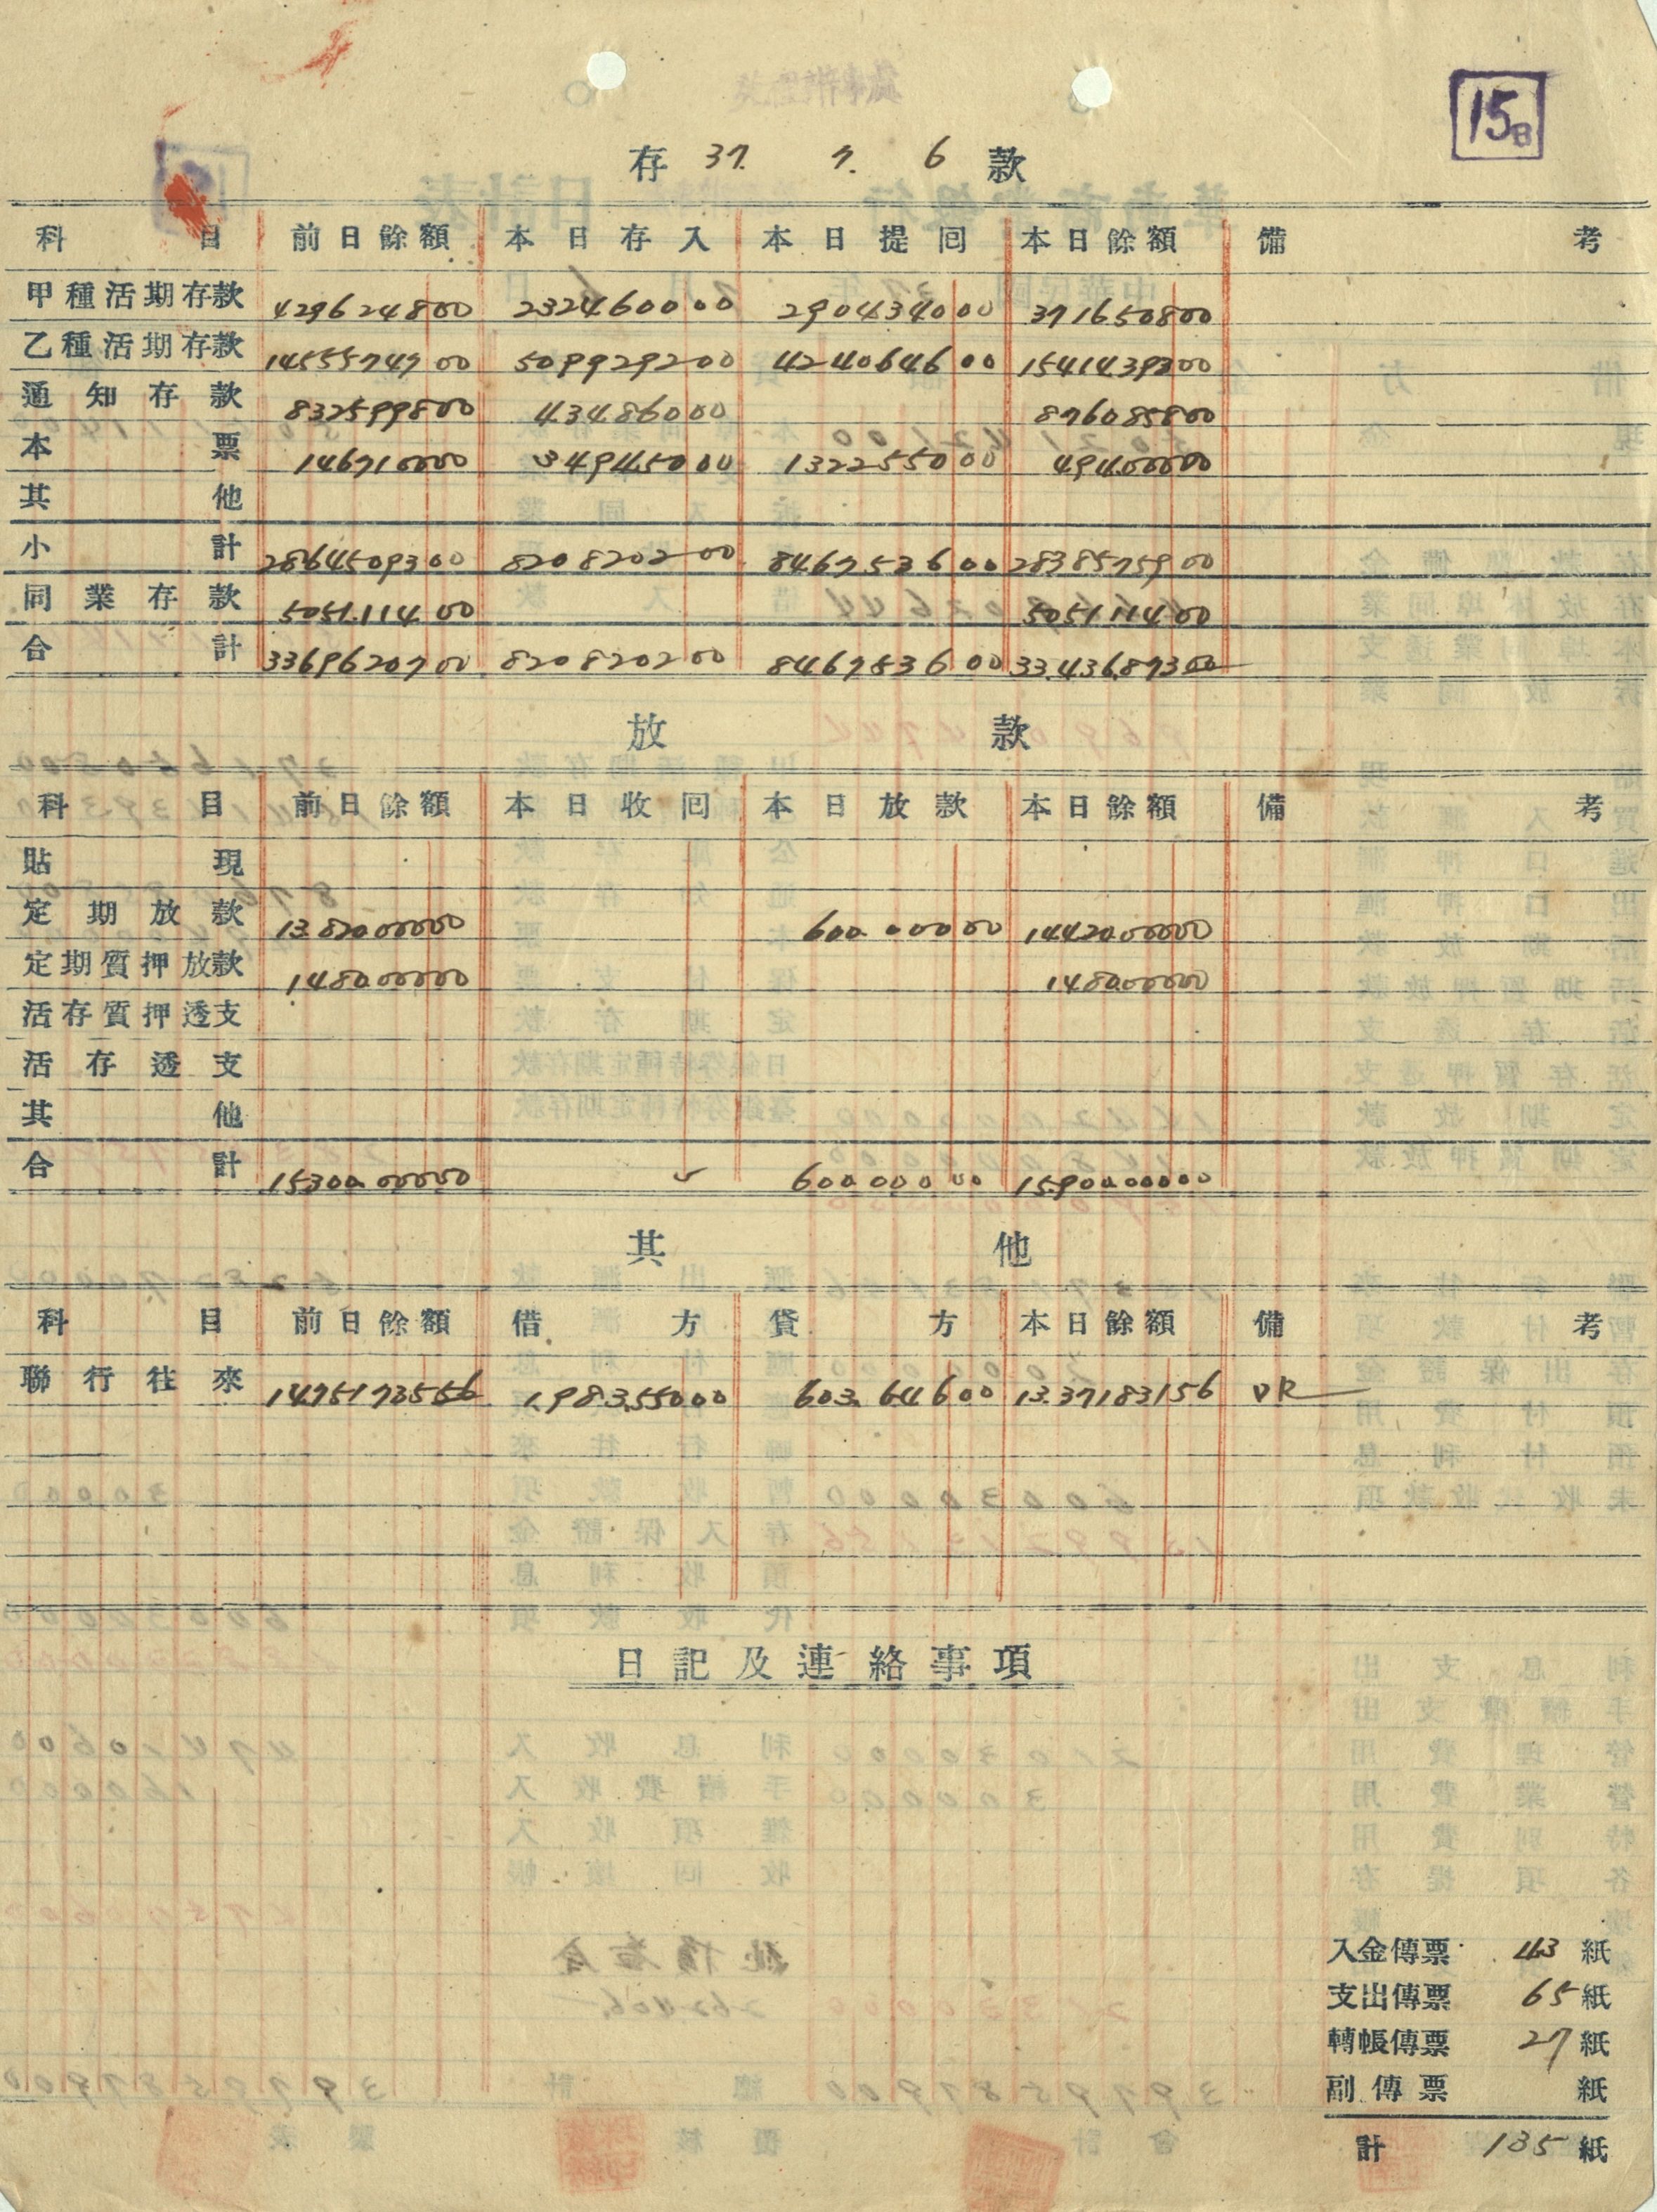 15日
存 37. 7. 6 款
科目 前日餘額 本日存入 本日提囘 本日餘額 備考
甲種活期存款 429624800 232460000 290434000 371650800
乙種活期存款 1455574700 509929200 424064600 1541439300
通知存款 832599800 43486000 876085800
本票 146710000 34945000 132255000 49400000
其他
小計 2864509300 820820200 846753600 2838575900
同業存款 5051.11400 505111400
合計 3369620700 820820200 846753600 33.436.87300
放款
科目 前日餘額 本日收囘 本日放款 本日餘額 備考
貼現
定期放款 13.820.00000 600.00000 14420.00000
定期質押放款 1480.00000 1480.00000
活存質押透支
活存透支
其他
合計 15300.00000 600.00000 15.900.00000
其他
科目 前日餘額 借方 貸方 本日餘額 備考
聯行往來 1475173556 1.983.55000 603.64600 13.37183156 DR
日記及連絡事項
入金傳票 43 紙
支出傳票 65 紙
轉帳傳票 27 紙
副傳票 紙
計 135 紙